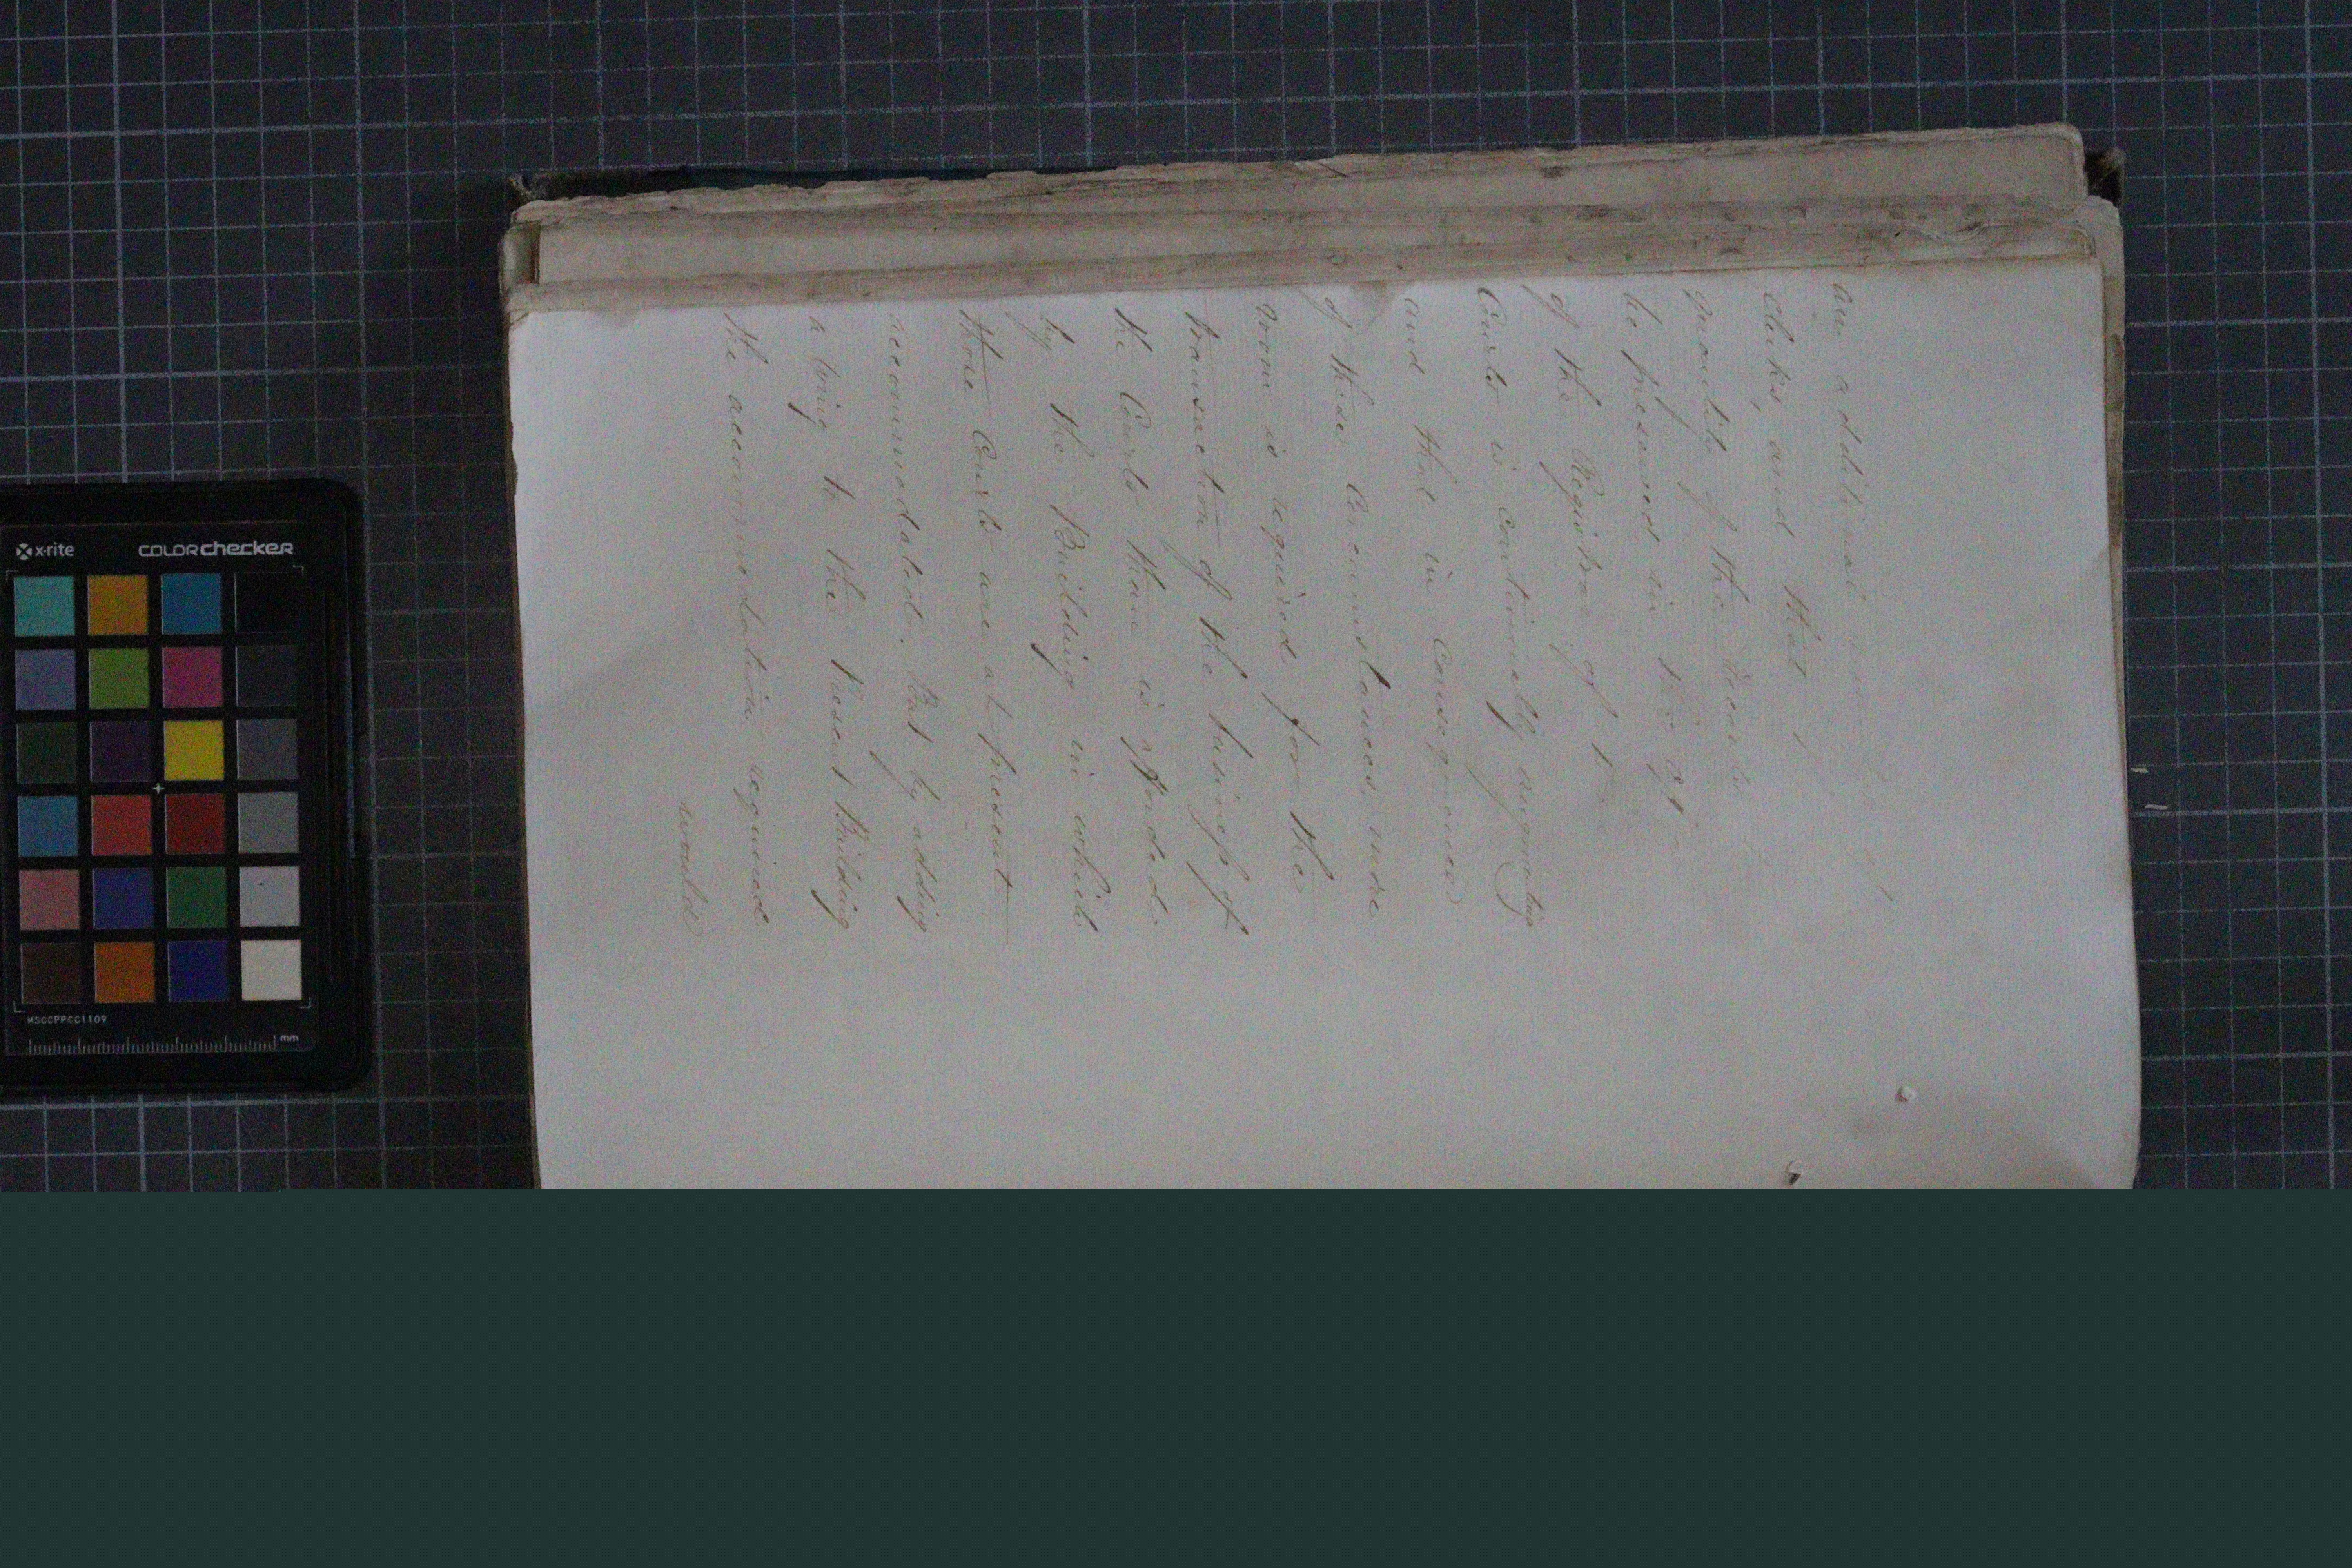 an additional
clerks, and that
quantity of the
be preserved in the
of the Registrar of
Courts is continually augmenting
and that in consequence
of these Circumstances, more
room is required for the
transaction of the business of
the Courts than is afforded
by the Building in which
those Courts are at present
accommodated. But by adding
a wing to the present Building
the accommodation required
would
x-rite
colorchecker
MSCCPPCC1109
mm